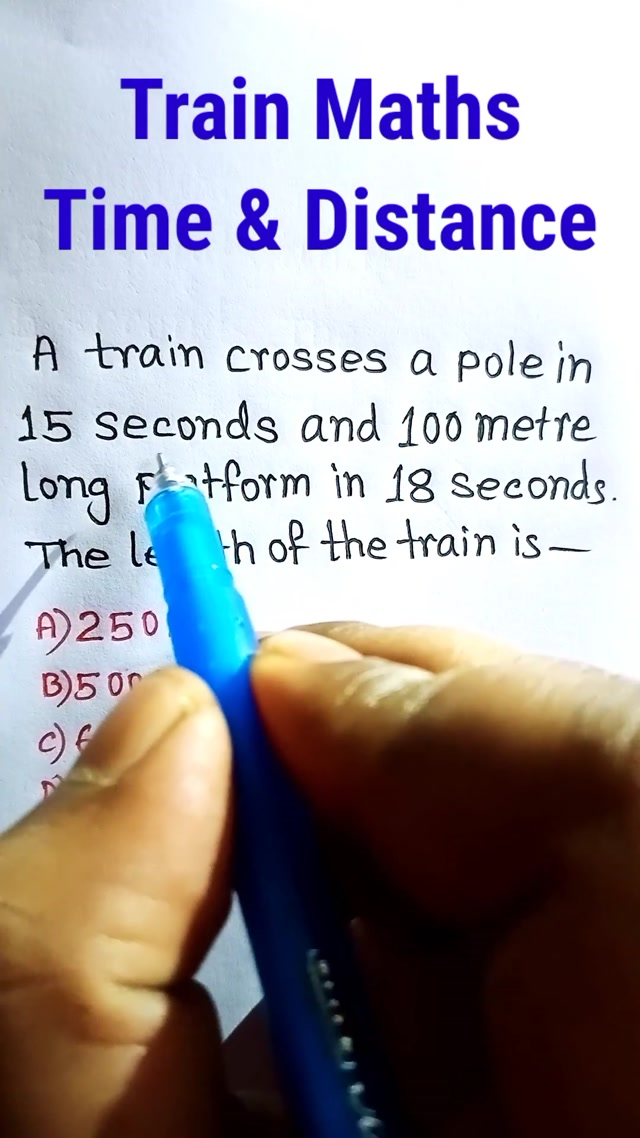 Train Maths
Time & Distance
A train crosses a pole in
15 seconds and 100 metre
long platform in 18 seconds.
The length of the train is —
A) 250
B) 500
C)